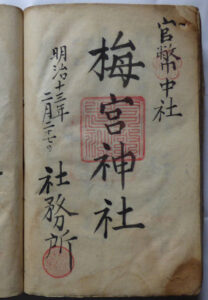 官幣中社
梅宮神社
明治十三年
二月二十七日
社務所